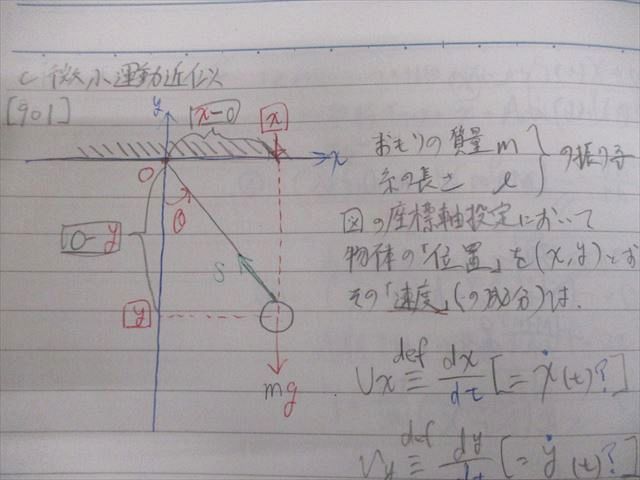 c 微小運動近似
[901]
y
x-0
x
x
O
θ
0-y
S
y
mg
おもりの質量 m
糸の長さ l
の振り子
図の座標軸設定において
物体の「位置」を(x,y)とお
その「速度」(の成分)は.
Vx def≡ dx/dt [= ẋ(t)?]
Vy def≡ dy/dt [= ẏ(t)?]